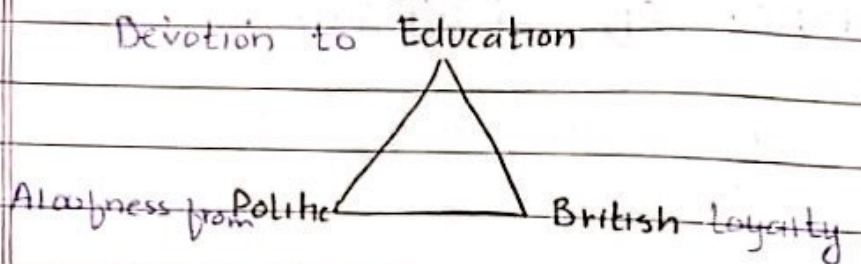 Devotion to Education
Aloofness from Politic
British Loyalty